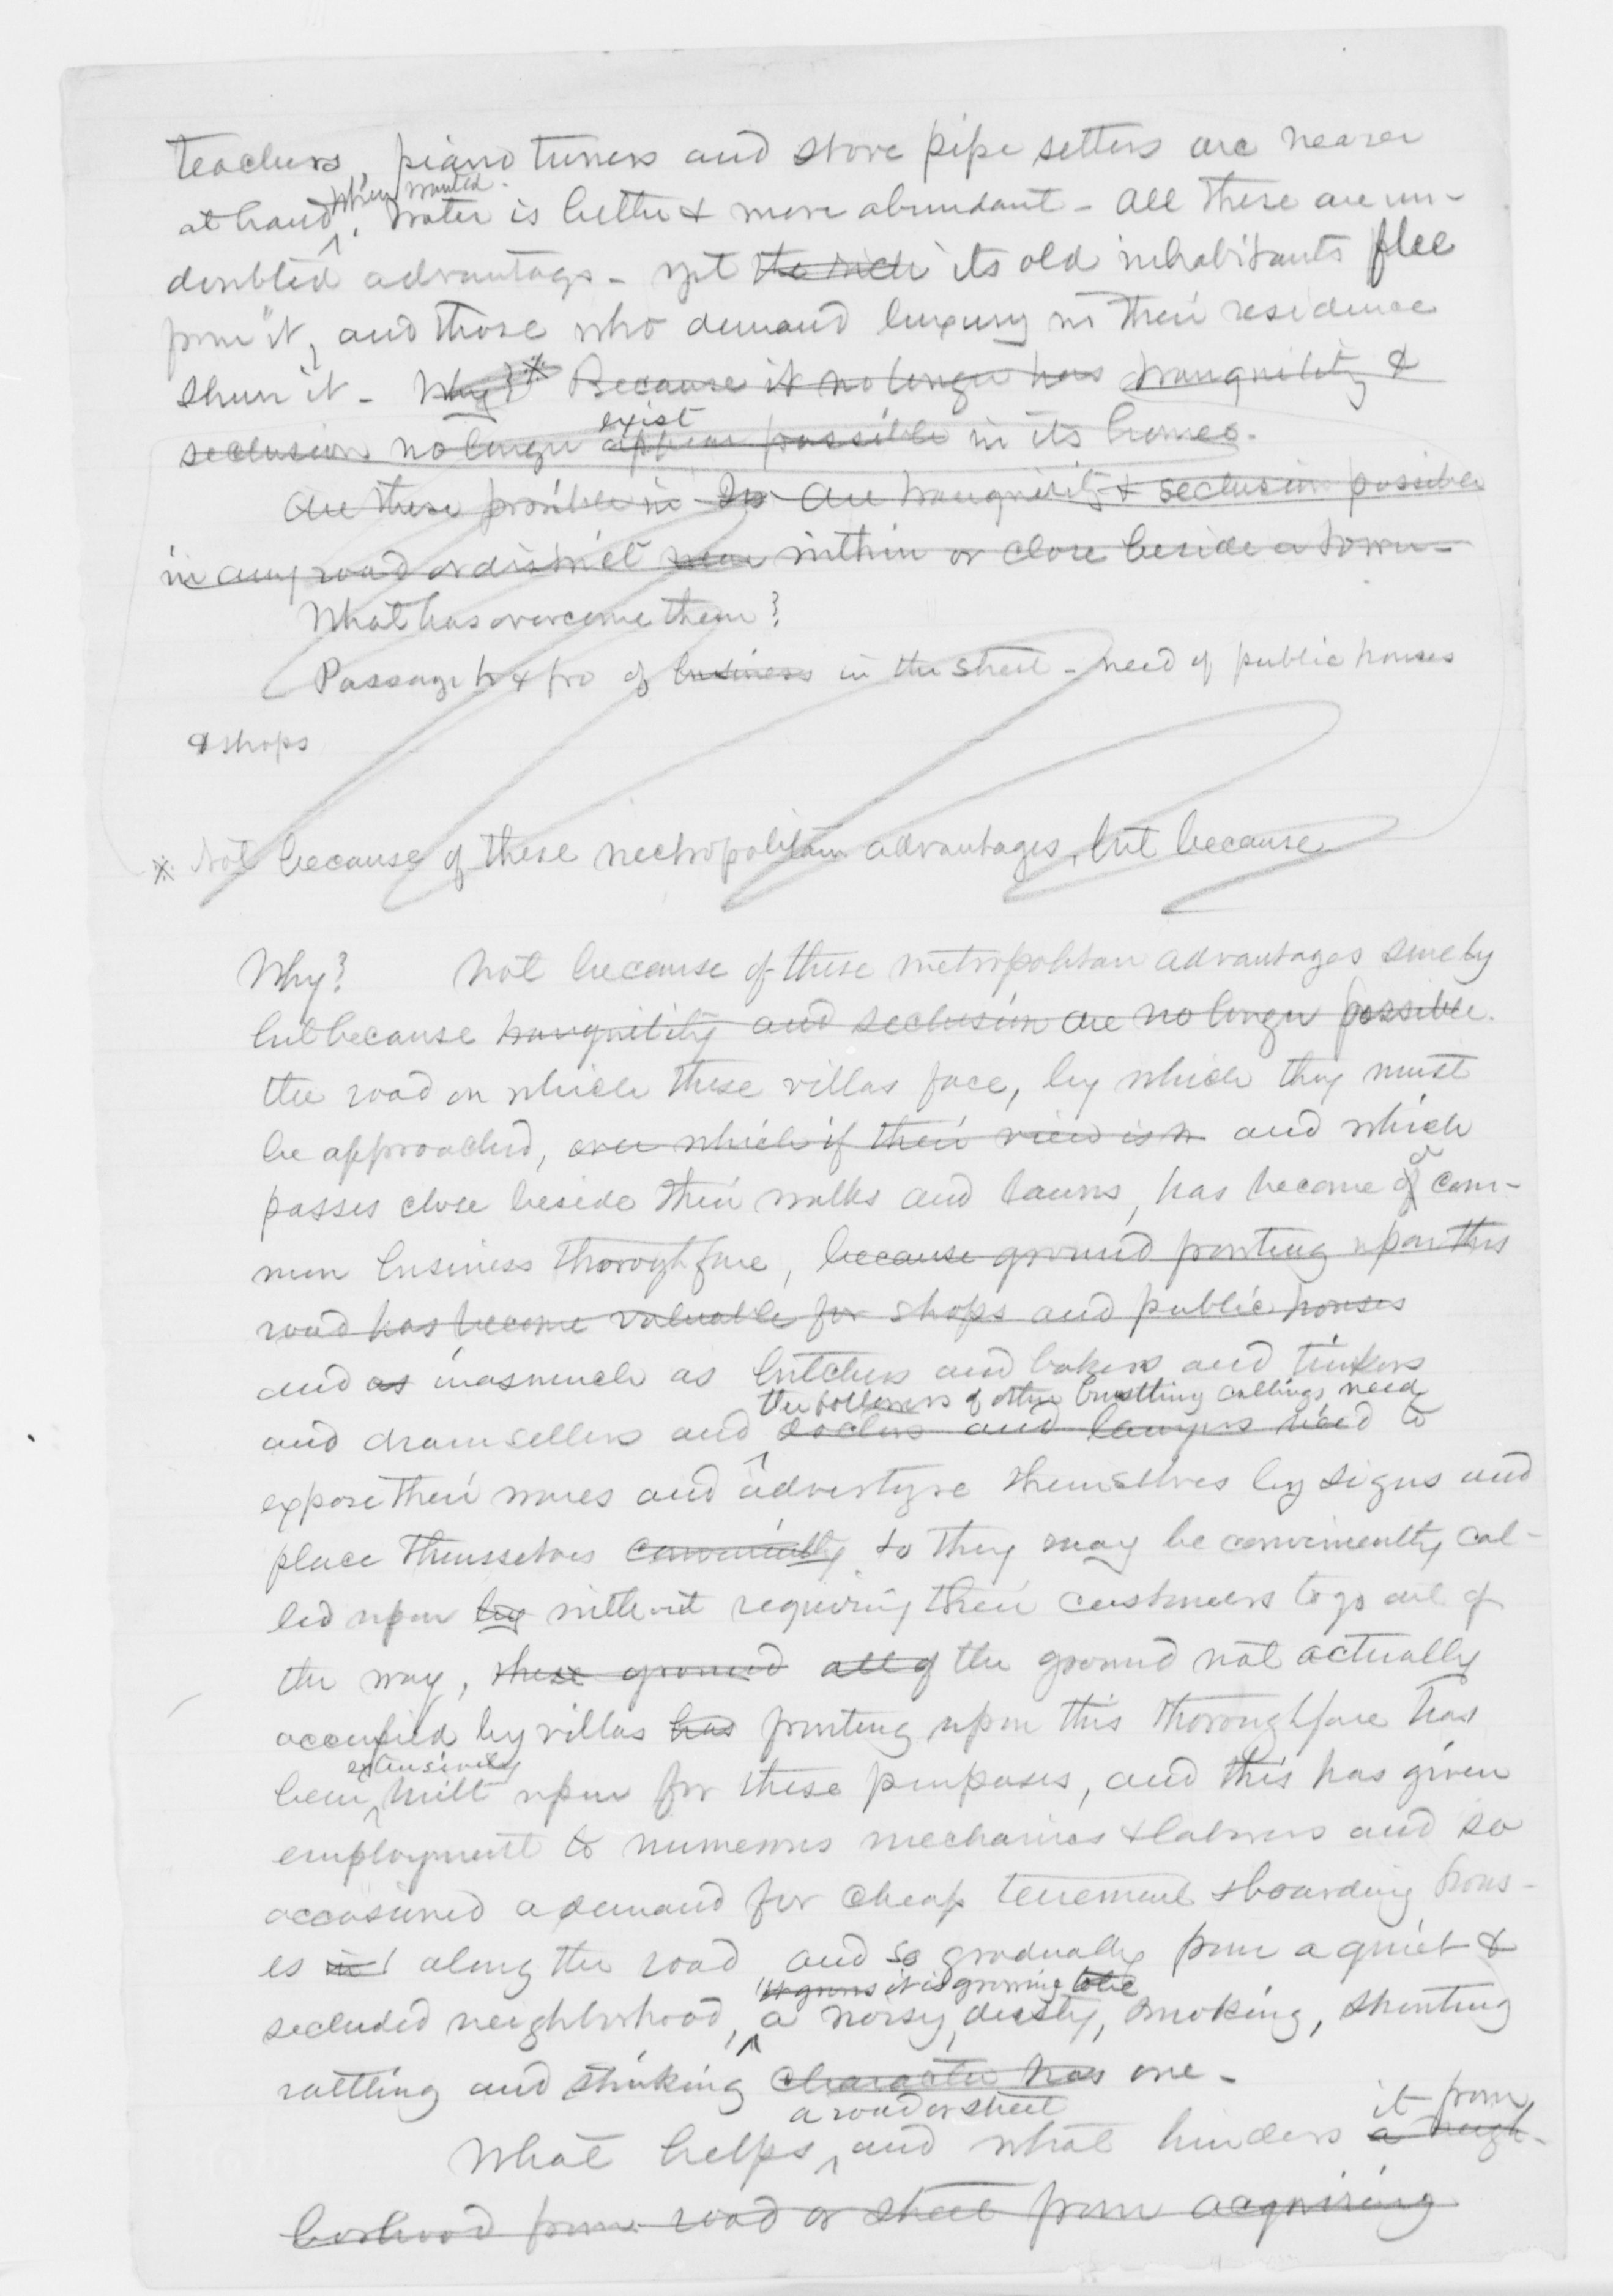 teachers, piano tuners and stove pipe setters are nearer
at hand when wanted. Water is better & more abundant - All these are un-
doubted advantags - yet the rich its old inhabitants flee
from it, and those who demand luxury in their residence
shun it - Why? * Because it no longer has tranquility &
seclusion no longer appear possible exist in its homes.
Are these possible in Is Are tranquility & seclusion possible
in any road or district near within or close beside a town -
What has overcome them?
Passage to & fro of business in the street - need of public houses
& shops
* Not because of these metropolitan advantages, but because
Why? Not because of these metropolitan advantages surely
but because tranquility and seclusion are no longer possible.
the road on which these villas face, by which they must
be approached, over which if their view is and which
passes close beside their walks and lawns, has become a com-
mon business thoroughfare, because ground fronting upon this
road has become valuable for shops and public houses
and as inasmuch as butchers and bakers and tinkers
and dramsellers and the followers of other bustling callings need doctors and lawyers need to
expose their wares and advertyse themselves by signs and
place themsselves conveniently so they may be conveniently cal-
led upon by without requiring their customers to go out of
the way, these ground all of the ground not actually
occupied by villas has fronting upon this thoroughfare has
been extensively built upon for these purposes, and this has given
employment to numerous mechanics & laborers and so
occasioned a demand for cheap tenement & boarding hous-
es in along the road and so gradually from a quiet &
secluded neighborhood, it grows it is growing to be a noisy, dusty, smoking, shouting
rattling and stinking character has one -
What helps a road or street and what hinders it from a neigh-
borhood from road or street from acquiring